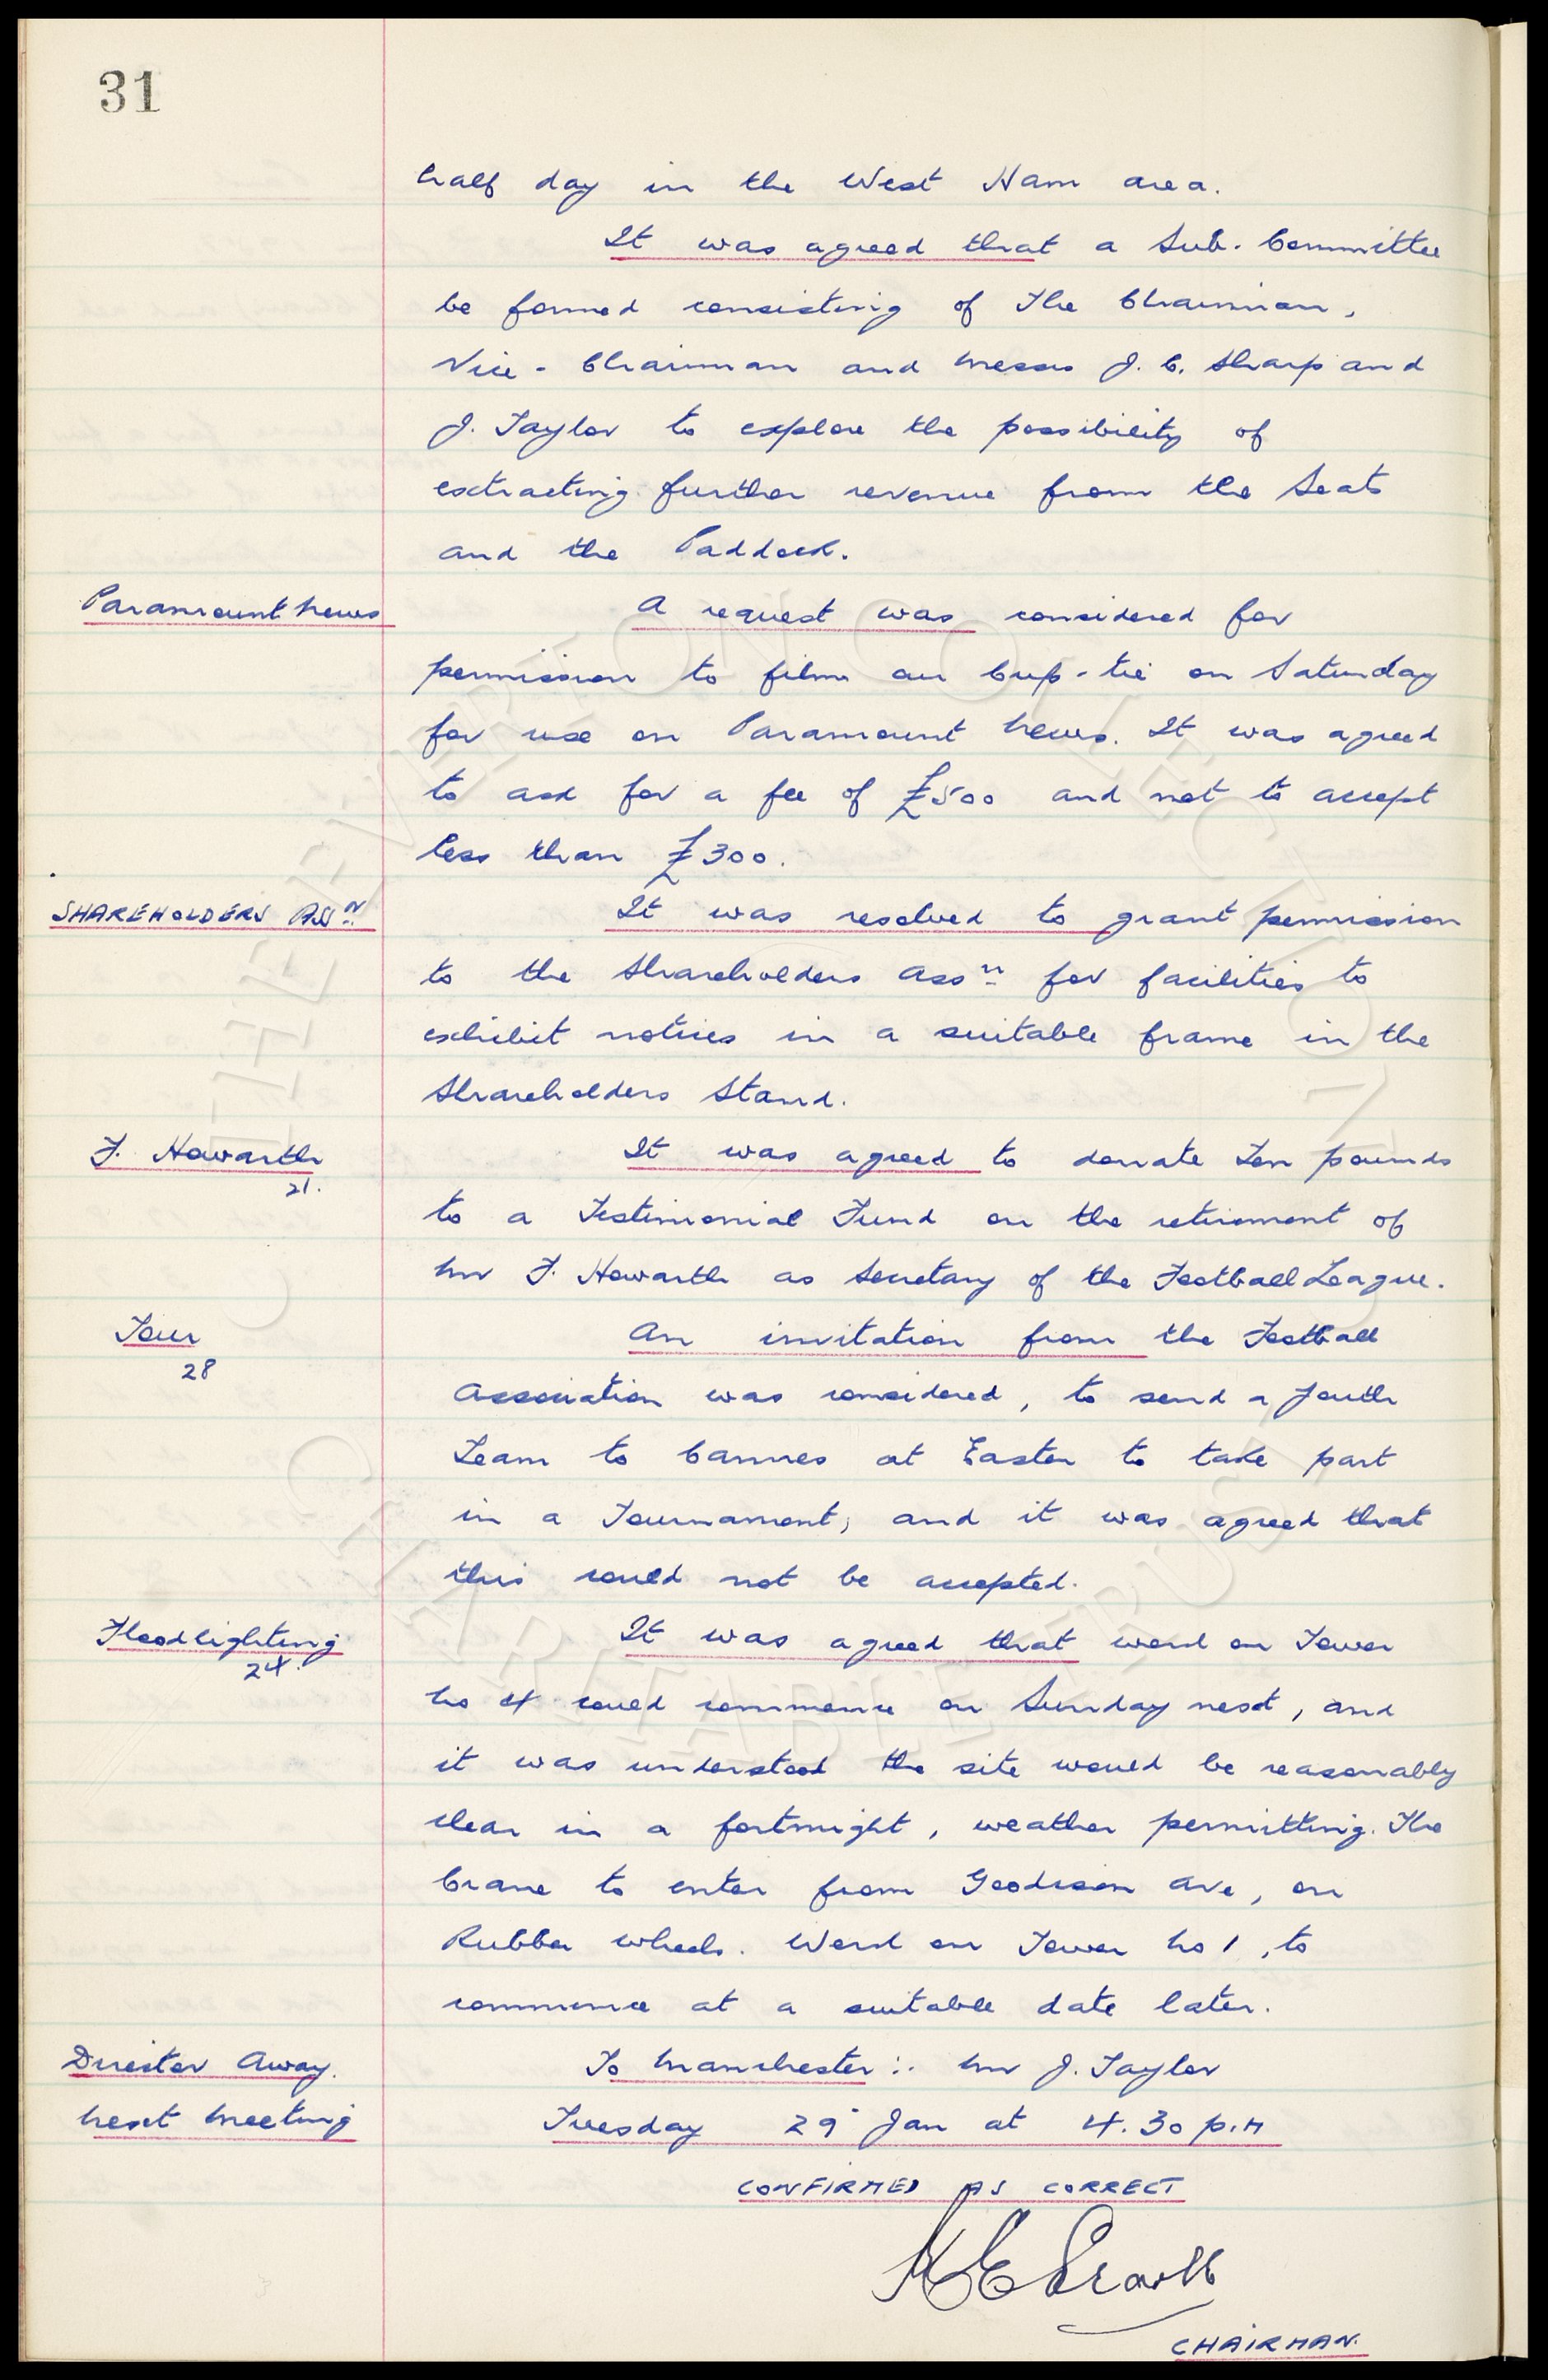 31
half day in the West Ham area.
It was agreed that a Sub-Committee
be formed consisting of The Chairman,
Vice-Chairman and Messrs J. C. Sharp and
J. Taylor to explore the possibility of
extracting further revenue from the Seats
and the Paddock.
Paramount News
A request was considered for
permission to film our Cup-tie on Saturday
for use on Paramount News. It was agreed
to ask for a fee of £500 and not to accept
less than £300.
SHAREHOLDERS ASSN
It was resolved to grant permission
to the Shareholders Assn for facilities to
exhibit notices in a suitable frame in the
Shareholders Stand.
F. Howarth
21.
It was agreed to donate Ten pounds
to a Testimonial Fund on the retirement of
Mr F. Howarth as Secretary of the Football League.
Tour
28
An invitation from the Football
Association was considered, to send a Youth
Team to Cannes at Easter to take part
in a Tournament, and it was agreed that
this could not be accepted.
Floodlighting
24.
It was agreed that work on Tower
No 4 could commence on Sunday next, and
it was understood the site would be reasonably
clear in a fortnight, weather permitting. The
Crane to enter from Goodison Ave, on
Rubber wheels. Work on Tower No 1, to
commence at a suitable date later.
Director Away.
To Manchester :. Mr J. Taylor
Next Meeting
Tuesday 29 Jan at 4.30 p.m
CONFIRMED AS CORRECT
CHAIRMAN.
EVERTON COLLECTION
CHARITABLE TRUST